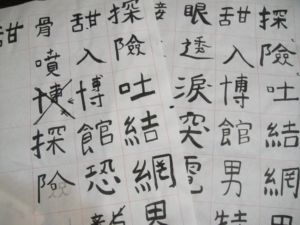 探險吐結網
甜入博館男特
眼透淚突雹
探險吐結網男
甜入博館恐
骨噴博探險
甜